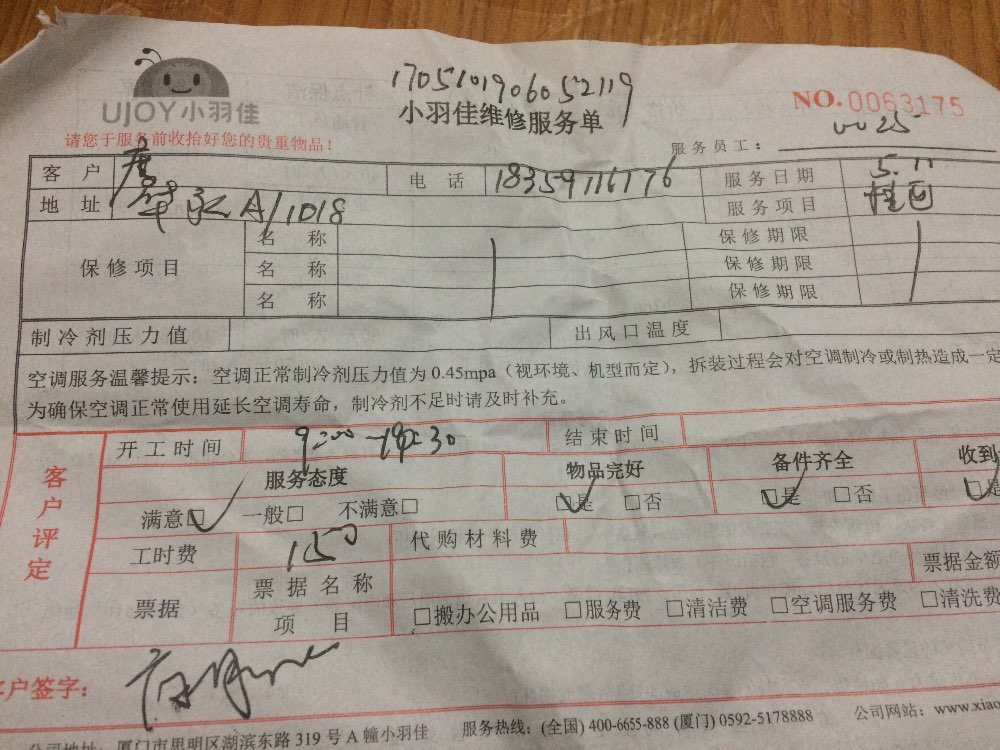 1705101906052119
UJOY小羽佳
小羽佳维修服务单
NO.0063175
请您于服务前收拾好您的贵重物品！
服务员工：
客户 唐 电话 18359116176 服务日期 5.11
地址 A/1018 服务项目
保修项目 名称 保修期限
名称 保修期限
名称 保修期限
制冷剂压力值 出风口温度
空调服务温馨提示：空调正常制冷剂压力值为 0.45mpa（视环境、机型而定），拆装过程会对空调制冷或制热造成一定
为确保空调正常使用延长空调寿命，制冷剂不足时请及时补充。
客户评定
开工时间 9:00 结束时间
服务态度 物品完好 备件齐全 收到
满意□ 一般□ 不满意□ □是 □否 □是 □否 □是
工时费 150 代购材料费
票据 票据名称 票据金额
项目 □搬办公用品 □服务费 □清洁费 □空调服务费 □清洗费
户签字：
公司地址：厦门市思明区湖滨东路 319 号 A 幢小羽佳 服务热线：(全国) 400-6655-888 (厦门) 0592-5178888 公司网站：www.xiao